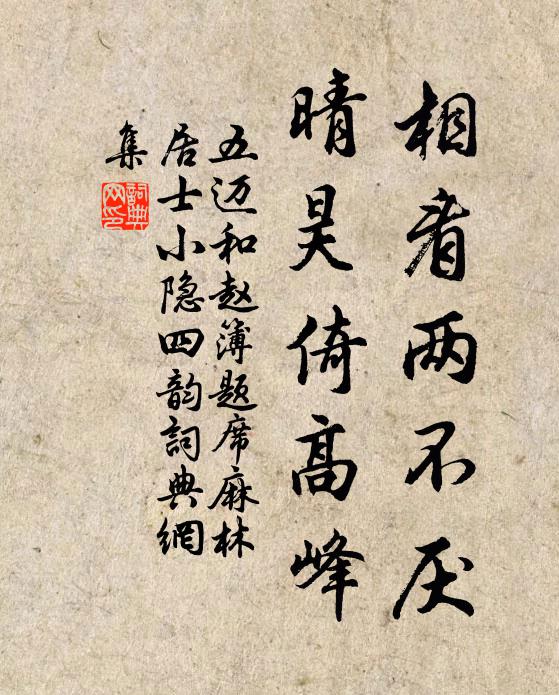 相看两不厌
晴昊倚高峰
五迈和赵簿题席麻林
居士小隐四韵詞典網
集
詞典
网印